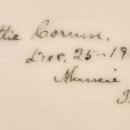 thie Corum,
Dec. 25-19
Muncie